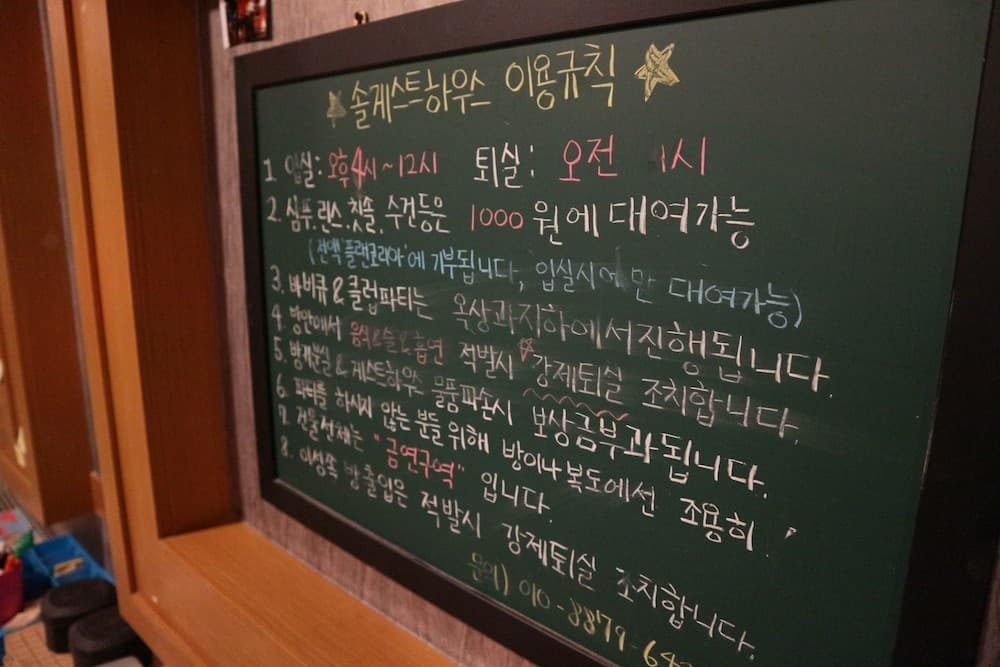 솔게스트하우스 이용규칙
1. 입실: 오후4시~12시 퇴실: 오전 11시
2. 샴푸.린스.칫솔.수건등은 1000원에 대여가능
(전액 '플랜코리아'에 기부됩니다, 입실시에만 대여가능)
3. 바비큐&클럽파티는 옥상과지하에서진행됩니다.
4. 방안에서 음식&술&흡연 적발시 강제퇴실 조치합니다.
5. 방개분실&게스트하우스 물품파손시 보상금부과됩니다.
6. 파티를 하시지 않는 분들을 위해 방이나 복도에선 조용히!
7. 건물전체는 "금연구역" 입니다.
8. 이성쪽 방 출입은 적발시 강제퇴실 조치합니다.
문의) 010-8879-64